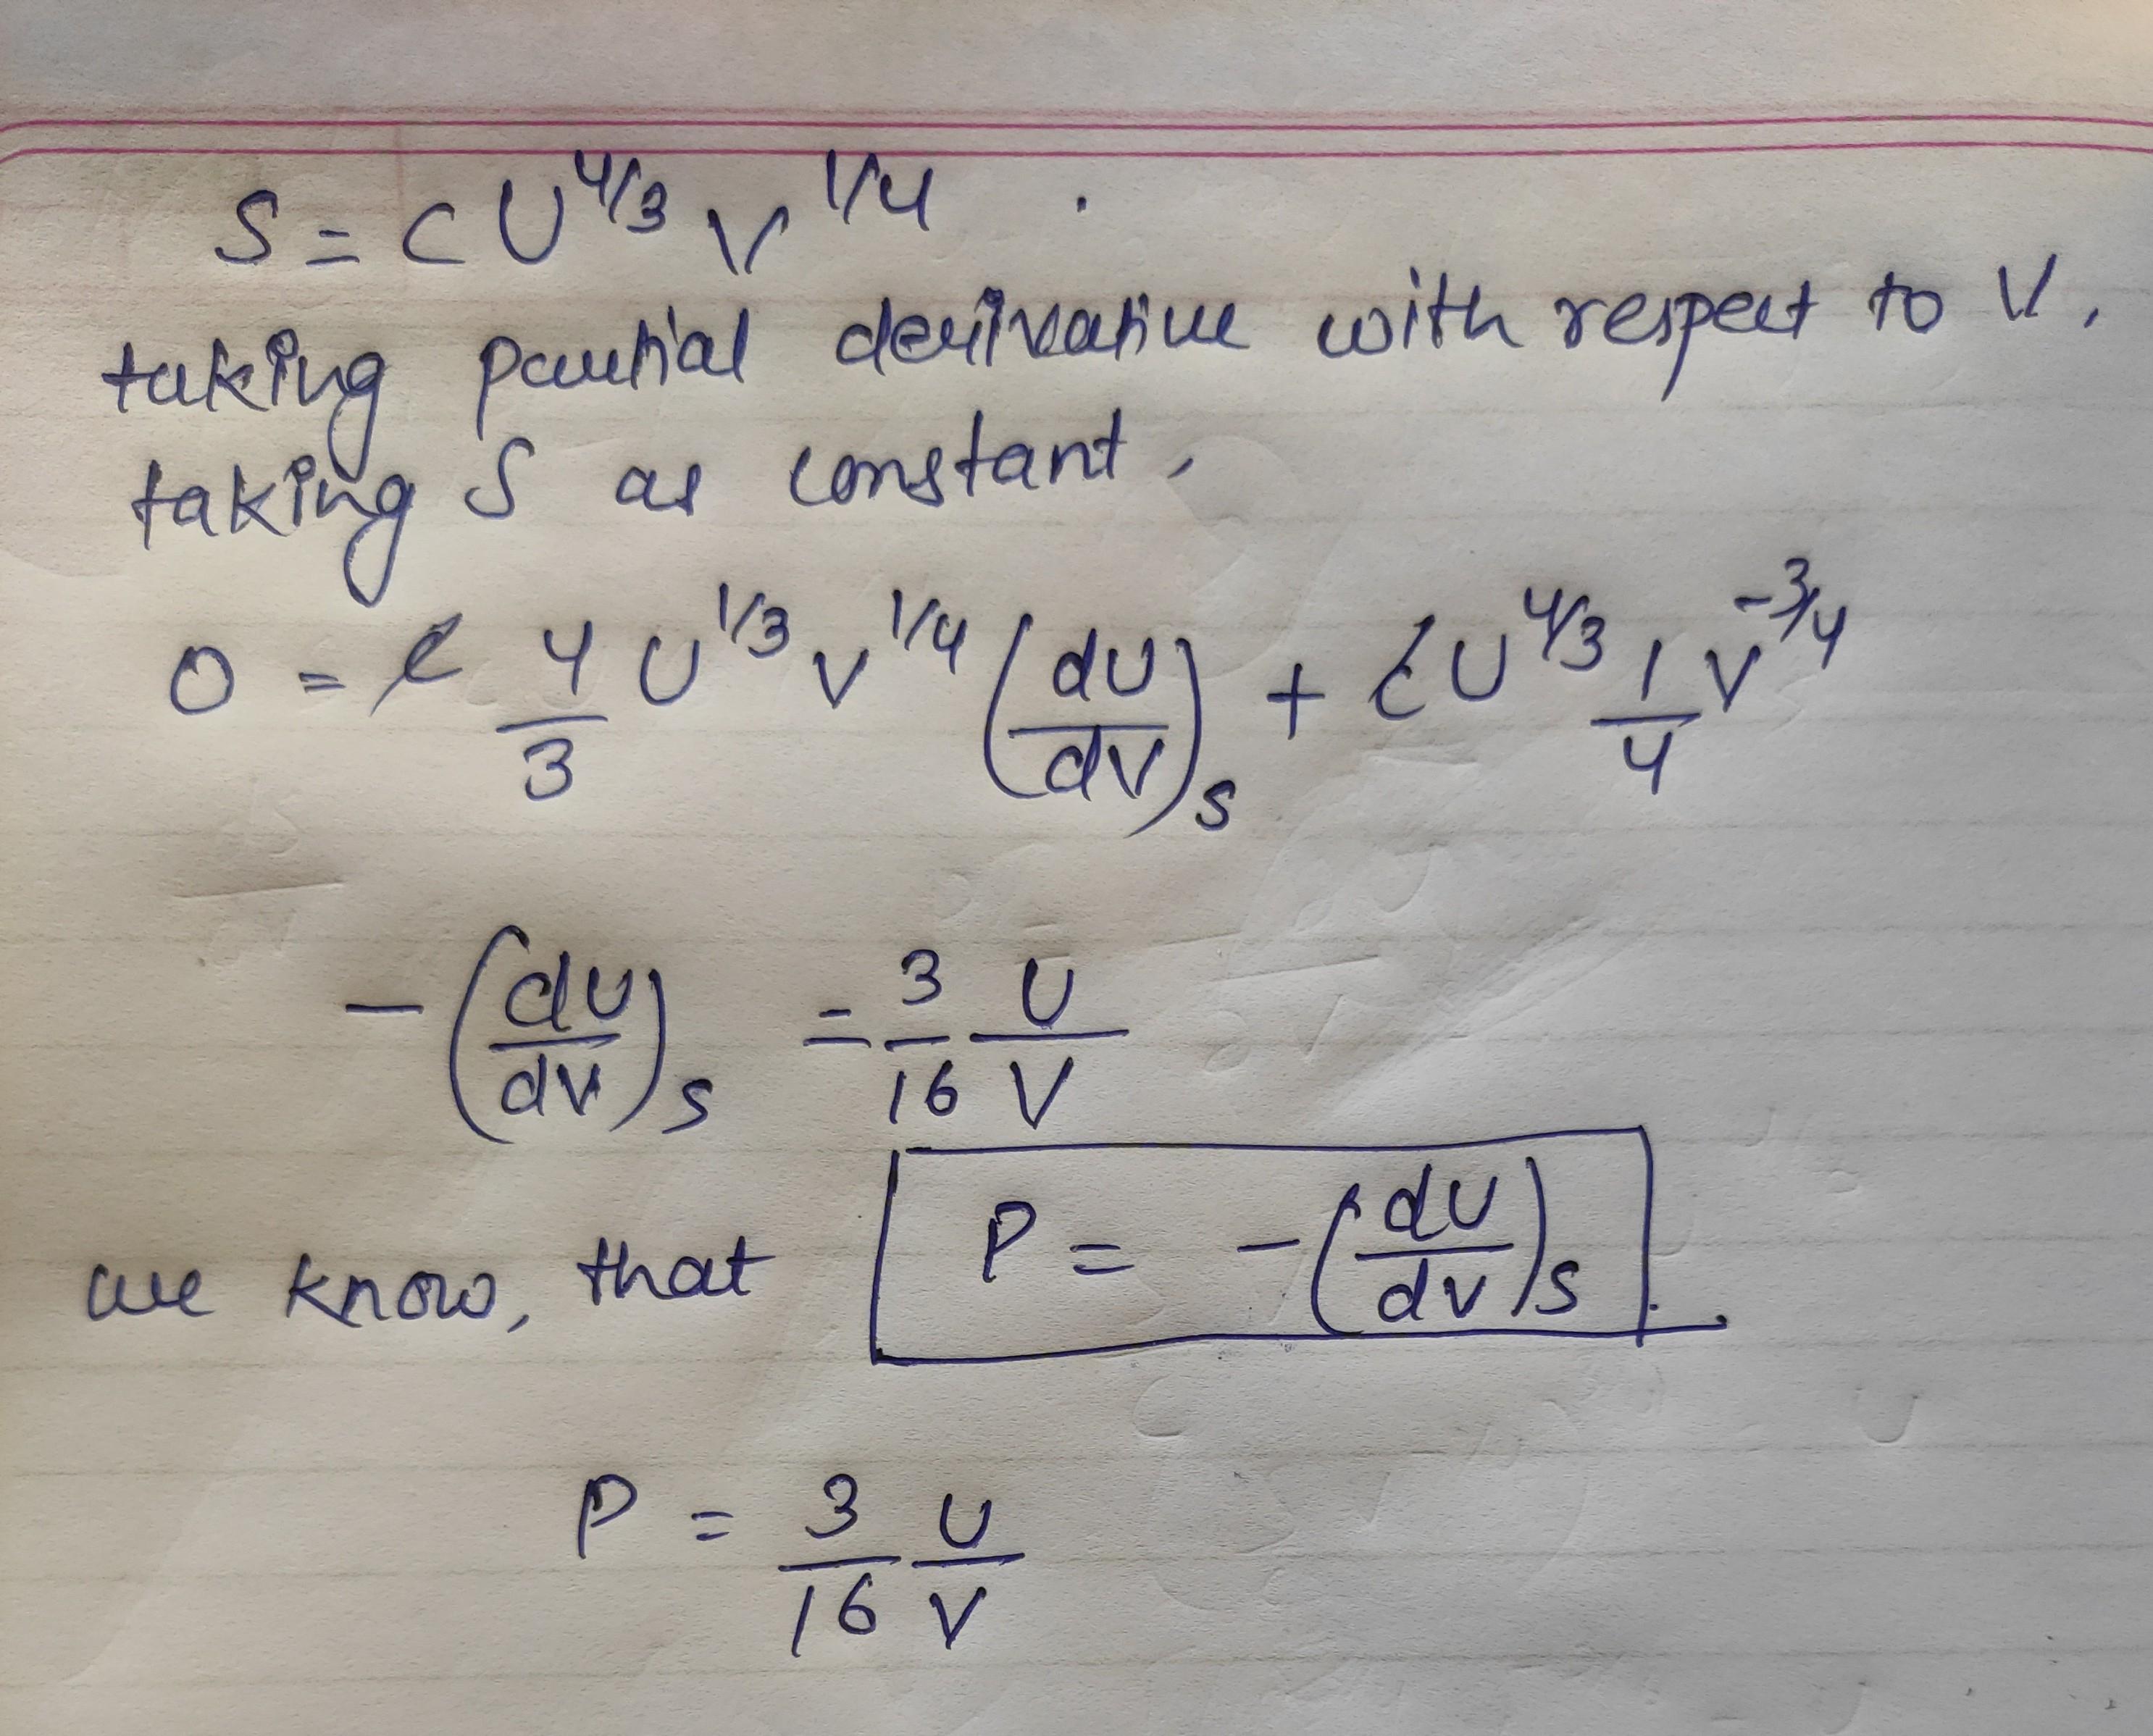 S = C U^4/3 V^1/4 .
taking partial derivative with respect to V,
taking S as constant,
0 = C 4/3 U^1/3 V^1/4 (dU/dV)_S + C U^4/3 1/4 V^-3/4
-(dU/dV)_S = 3/16 U/V
we know, that P = -(dU/dV)_S .
P = 3/16 U/V